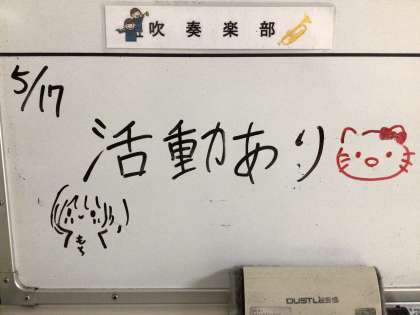 吹奏楽部
5/17
活動あり
もち
DUSTLESS